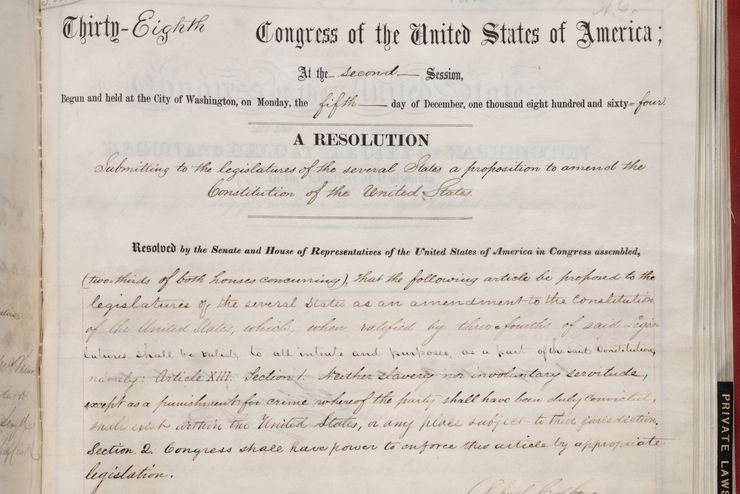 Thirty-Eighth Congress of the United States of America;
At the second Session,
Begun and held at the City of Washington, on Monday, the fifth day of December, one thousand eight hundred and sixty-four
A RESOLUTION
Submitting to the legislatures of the several States a proposition to amend the
Constitution of the United States.
Resolved by the Senate and House of Representatives of the United States of America in Congress assembled,
(two-thirds of both houses concurring), that the following article be proposed to the
legislatures of the several States as an amendment to the Constitution
of the United States, which, when ratified by three-fourths of said Legis-
latures, shall be valid, to all intents and purposes, as a part of the said Constitution,
namely: Article XIII. Section 1. Neither slavery nor involuntary servitude,
except as a punishment for crime whereof the party shall have been duly convicted,
shall exist within the United States, or any place subject to their jurisdiction.
Section 2. Congress shall have power to enforce this article by appropriate
legislation.
PRIVATE LAWS